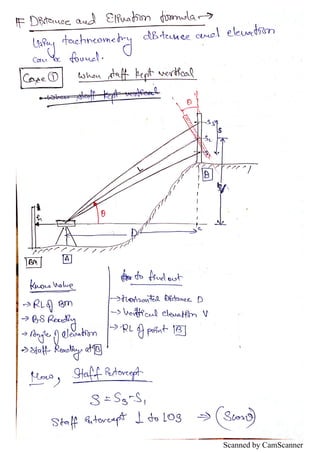 # Distance and Elevation formula →
Using tachneometry distance and elevation
can be found.
Case ① When staff kept vertical
When staff kept vertical
θ
S3
S
S2
S1
B
V
L
θ
h
D
c
BM
A
Know Value
→ RL of BM
→ BS Reading
→ Angle of elevation
→ Staff Reading at B
to find out
→ Horizontal Distance D
→ Vertical elevation V
→ RL of point B
Now, Staff Intercept
S = S3 - S1
Staff Intercept ⊥ to LOS ⇒ (S cosθ)
Scanned by CamScanner